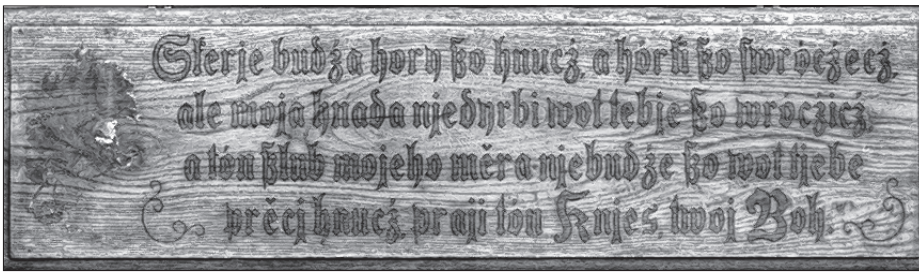 Skerje budźa hory ßo hnucż, a hórki ßo ſwróczecż,
ale moja hnada njedyrbi wot tebje ßo wróczicż,
a tón ßlub mojeho měra njebudźe ßo wot tjebe
prěcj hnucż, praji tón Knjes, twoj Boh.